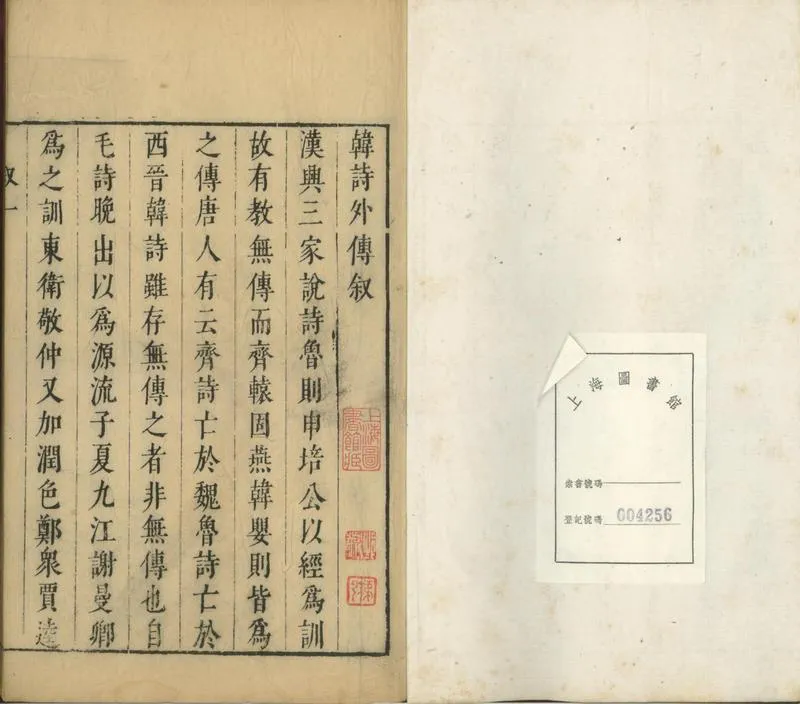 上海圖書館
索書號碼
登記號碼 004256
韓詩外傳叙
漢興三家說詩魯則申培公以經爲訓
故有教無傳而齊轅固燕韓嬰則皆爲
之傳唐人有云齊詩亡於魏魯詩亡於
西晉韓詩雖存無傳之者非無傳也自
毛詩晚出以爲源流子夏九江謝曼卿
爲之訓東衛敬仲又加潤色鄭衆賈逵
叙一
上海圖
書館